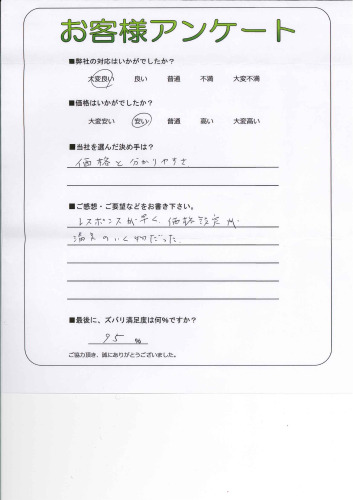 お客様アンケート
■弊社の対応はいかがでしたか?
大変良い 良い 普通 不満 大変不満
■価格はいかがでしたか?
大変安い 安い 普通 高い 大変高い
■当社を選んだ決め手は?
価格と分かりやすさ
■ご感想・ご要望などをお書き下さい。
レスポンスが早く、価格設定が
満足のいく物だった。
■最後に、ズバリ満足度は何%ですか?
95 %
ご協力頂き、誠にありがとうございました。